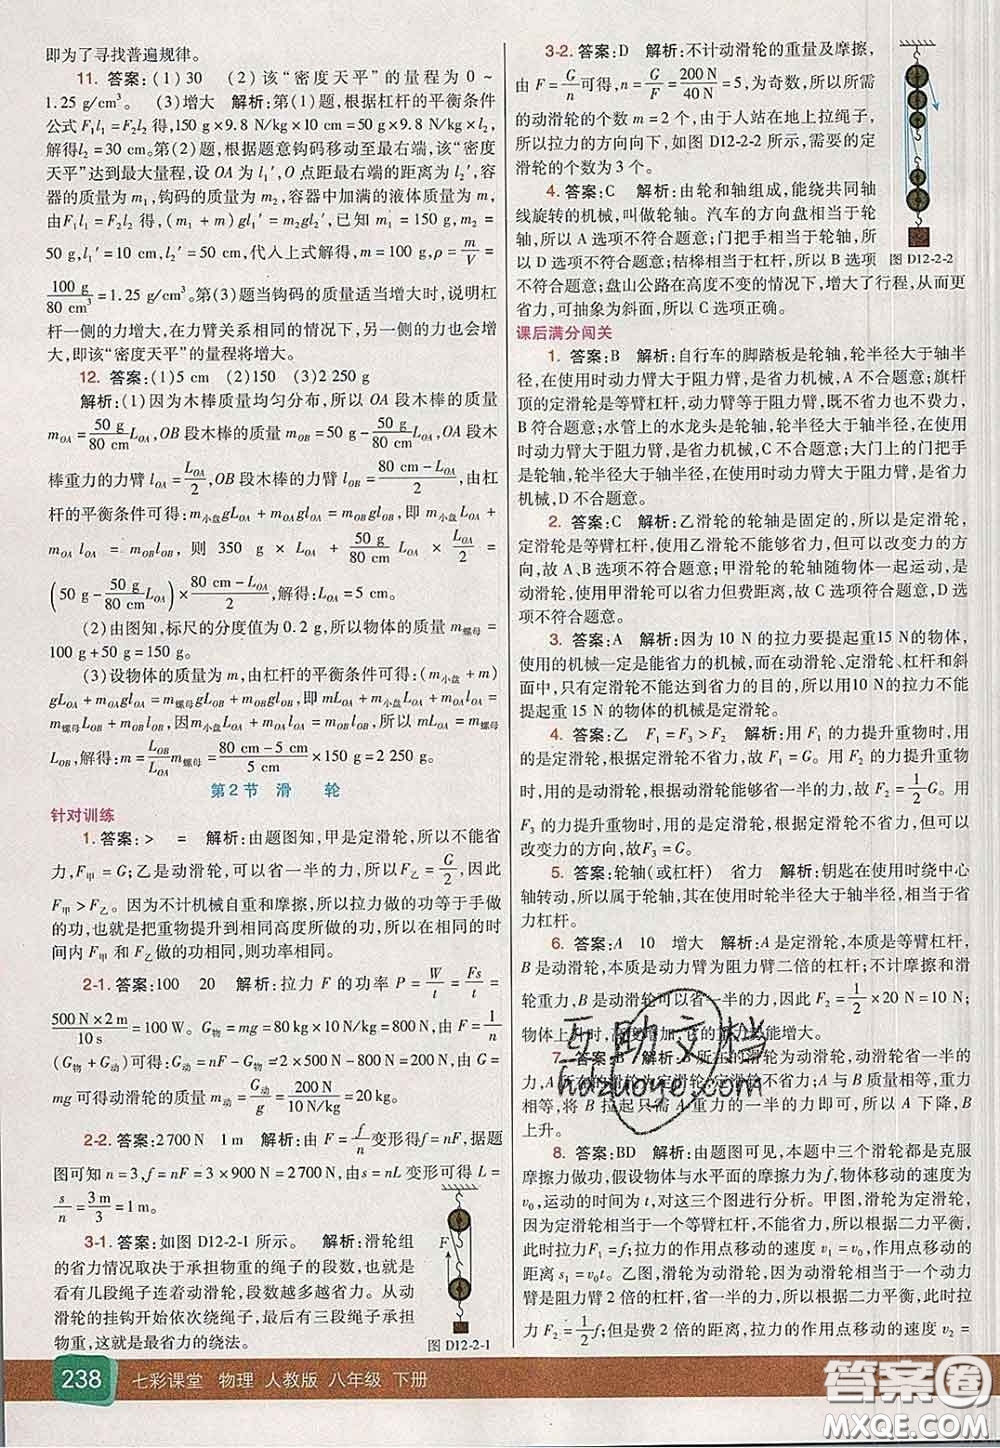 即为了寻找普遍规律。
11. 答案:(1)30 (2)该“密度天平”的量程为 0 ~
1.25 g/cm³。 (3)增大 解析:第(1)题,根据杠杆的平衡条件
公式 F₁l₁ = F₂l₂ 得,150 g×9.8 N/kg×10 cm=50 g×9.8 N/kg×l₂,
解得l₂=30 cm。第(2)题,根据题意钩码移至最右端,该“密度
天平”达到最大量程,设 OA 为 l₁′,O 点距最右端的距离为
l₂′,容器的质量为 m₁,钩码的质量为m₂,容器中加满的液体质量为 m,
由F₁l₁ = F₂l₂ 得,(m₁ + m)gl₁′ = m₂gl₂′,已知 m₁ = 150 g,m₂ =
50 g,l₁′ = 10 cm,l₂′ = 50 cm,代入上式解得,m = 100 g,ρ = m/V =
100 g/80 cm³ = 1.25 g/cm³。第(3)题当钩码的质量适当增大时,说明杠
杆一侧的力增大,在力臂关系相同的情况下,另一侧的力也会增
大,即该“密度天平”的量程将增大。
12. 答案:(1)5 cm (2)150 (3)2 250 g
解析:(1)因为木棒质量均匀分布,所以 OA 段木棒的质量
m_OA = 50 g/80 cm L_OA,OB 段木棒的质量 m_OB = 50 g - 50 g/80 cm L_OA,OA 段木
棒重力的力臂 l_OA = L_OA/2,OB 段木棒的力臂 l_OB = (80 cm - L_OA)/2,由杠
杆的平衡条件可得:m小盘gL_OA + m_OAgl_OA = m_OBgl_OB,即 m小盘L_OA +
m_OA l_OA = m_OBl_OB,则 350 g × L_OA + 50 g/80 cm L_OA × L_OA/2 =
(50 g - 50 g/80 cm L_OA) × (80 cm - L_OA)/2,解得:L_OA = 5 cm。
(2)由图知,标尺的分度值为 0.2 g,所以物体的质量 m螺母 =
100 g +50 g=150 g。
(3)设物体的质量为 m,由杠杆的平衡条件可得:(m小盘 + m)
gL_OA + m_OAgl_OA = m螺母gL_OB + m_OBgl_OB,即mL_OA + m小盘L_OA + m_OAl_OA =
m螺母L_OB + m_OBl_OB,因m小盘L_OA + m_OAl_OA = m_OBl_OB,所以 mL_OA = m螺母
L_OB,解得:m = L_OB/L_OA m螺母 = (80 cm - 5 cm)/5 cm × 150 g = 2 250 g。
第2节 滑 轮
针对训练
1. 答案:> = 解析:由题图知,甲是定滑轮,所以不能省
力,F甲 = G;乙是动滑轮,可以省一半的力,所以 F乙 = G/2,因此
F甲 > F乙。因为不计机械自重和摩擦,所以拉力做的功等于手做
的功,也就是把重物提升到相同高度所做的功,所以在相同的时
间内 F甲和 F乙做的功相同,则功率相同。
2-1. 答案:100 20 解析:拉力 F 的功率 P = W/t = Fs/t =
500 N×2 m/10 s = 100 W。G物 = mg = 80 kg×10 N/kg = 800 N。由 F = 1/n
(G物 + G动)可得:G动 = nF - G物 = 2×500 N - 800 N = 200 N。由 G =
mg 可得动滑轮的质量 m动 = G动/g = 200 N/10 N/kg = 20 kg。
2-2. 答案:2 700 N 1 m 解析:由 F = f/n 变形得 f = nF,据题
图可知 n = 3,f = nF = 3×900 N = 2 700 N;由 s = nL 变形可得 L =
s/n = 3 m/3 = 1 m。
3-1. 答案:如图 D12-2-1 所示。 解析:滑轮组
的省力情况取决于承担物重的绳子的段数,也就是
看有几段绳子连着动滑轮,段数越多越省力。从动
滑轮的挂钩开始依次绕绳子,最后有三段绳子承担
物重,这就是最省力的绕法。
F
图 D12-2-1
3-2. 答案:D 解析:不计动滑轮的重量及摩擦,
由 F = G/n 可得,n = G/F = 200 N/40 N = 5,为奇数,所以所用
的动滑轮的个数 m = 2 个,由于人站在地上拉绳子,
拉力的方向向下,如图 D12-2-2 所示,需要的定
滑轮的个数为 3 个。
图 D12-2-2
4. 答案:C 解析:由轮和轴组成,能绕共同轴
线旋转的机械,叫做轮轴。汽车的方向盘相当于轮轴,
所以 A 选项不符合题意;门把手相当于轮轴,所以
D 选项不符合题意;桔槔相当于杠杆,所以 B 选项
不符合题意;盘山公路在高度不变的情况下,增大了行程,从而更
省力,可抽象为斜面,所以 C 选项正确。
课后满分闯关
1. 答案:B 解析:自行车的脚踏板是轮轴,轮半径大于轴半
径,在使用时动力臂大于阻力臂,是省力机械,A 不合题意;旗杆
顶的定滑轮是等臂杠杆,动力臂等于阻力臂,既不省力也不费力,
B 符合题意;水管上的水龙头是轮轴,轮半径大于轴半径,在使用
时动力臂大于阻力臂,是省力机械,C 不合题意;大门上的门把手
是轮轴,轮半径大于轴半径,在使用时动力臂大于阻力臂,是省力
机械,D 不合题意。
2. 答案:C 解析:乙滑轮的轮轴是固定的,所以是定滑轮,
定滑轮是等臂杠杆,使用乙滑轮不能够省力,但可以改变力的方
向,所以 A、B 选项不符合题意;甲滑轮的轮轴随物体一起运动,是
动滑轮,使用甲滑轮可以省力,但要费距离,所以 C 选项符合题意,D
选项不符合题意。
3. 答案:A 解析:因为 10 N 的拉力要提起重15 N的物体,
使用的机械一定是能省力的机械,而在动滑轮、定滑轮、杠杆和斜
面中,只有定滑轮不能达到省力的目的,所以用10 N的拉力不能
提起重 15 N 的物体的机械是定滑轮。
4. 答案:乙 F₁ = F₃ > F₂ 解析:用 F₁ 的力提升重物时,用
的是定滑轮,根据定滑轮不省力,故 F₁ = G。用 F₂ 的力提升重物
时,用的是动滑轮,根据动滑轮能够省一半的力,故 F₂ = 1/2 G。用
F₃ 的力提升重物时,用的是定滑轮,根据定滑轮不省力但可以
改变力的方向,故F₃ = G。
5. 答案:轮轴(或杠杆) 省力 解析:钥匙在使用时绕中心
轴转动,所以属于轮轴,其在使用时轮半径大于轴半径,相当于省
力杠杆。
6. 答案:A 10 增大 解析:A 是定滑轮,本质是等臂杠杆;
B 是动滑轮,本质是动力臂为阻力臂二倍的杠杆;不计摩擦和滑
轮重力,B 是动滑轮可以省一半的力,因此 F = 1/2 ×20 N = 10 N;
物体上升时,高度增加,它的重力势能增大。
7. 答案:B 解析:B 所在的滑轮为动滑轮,动滑轮省一半的
力,A 所在的滑轮为定滑轮,定滑轮不省力;A、B 两物体的重力
相等,将 B 拉起只需 A 重力的一半的力即可,所以 A 下降,B
上升。
8. 答案:BD 解析:由题图可见,本题中三个滑轮都是克服
摩擦力做功,假设物体与水平面的摩擦力为 f,物体移动的速度为
v₀,运动的时间为 t,对这三个图进行分析。甲图,滑轮为定滑轮,
因为定滑轮相当于一个等臂杠杆,不能省力,所以根据二力平衡,
此时拉力F₁ = f;拉力的作用点移动的速度 v₁ = v₀,此时拉力移动
距离 s₁ = v₀t。乙图,滑轮为动滑轮,因为动滑轮相当于一个动力
臂是阻力臂 2 倍的杠杆,省一半的力,所以根据二力平衡,此时的
拉力 F₂ = 1/2 f;但是费 2 倍的距离,拉力的作用点移动的速度 v₂ =
238 七彩课堂 物理 人教版 八年级 下册
互助文档
hdzuoye.com
答案圈
MXQE.COM